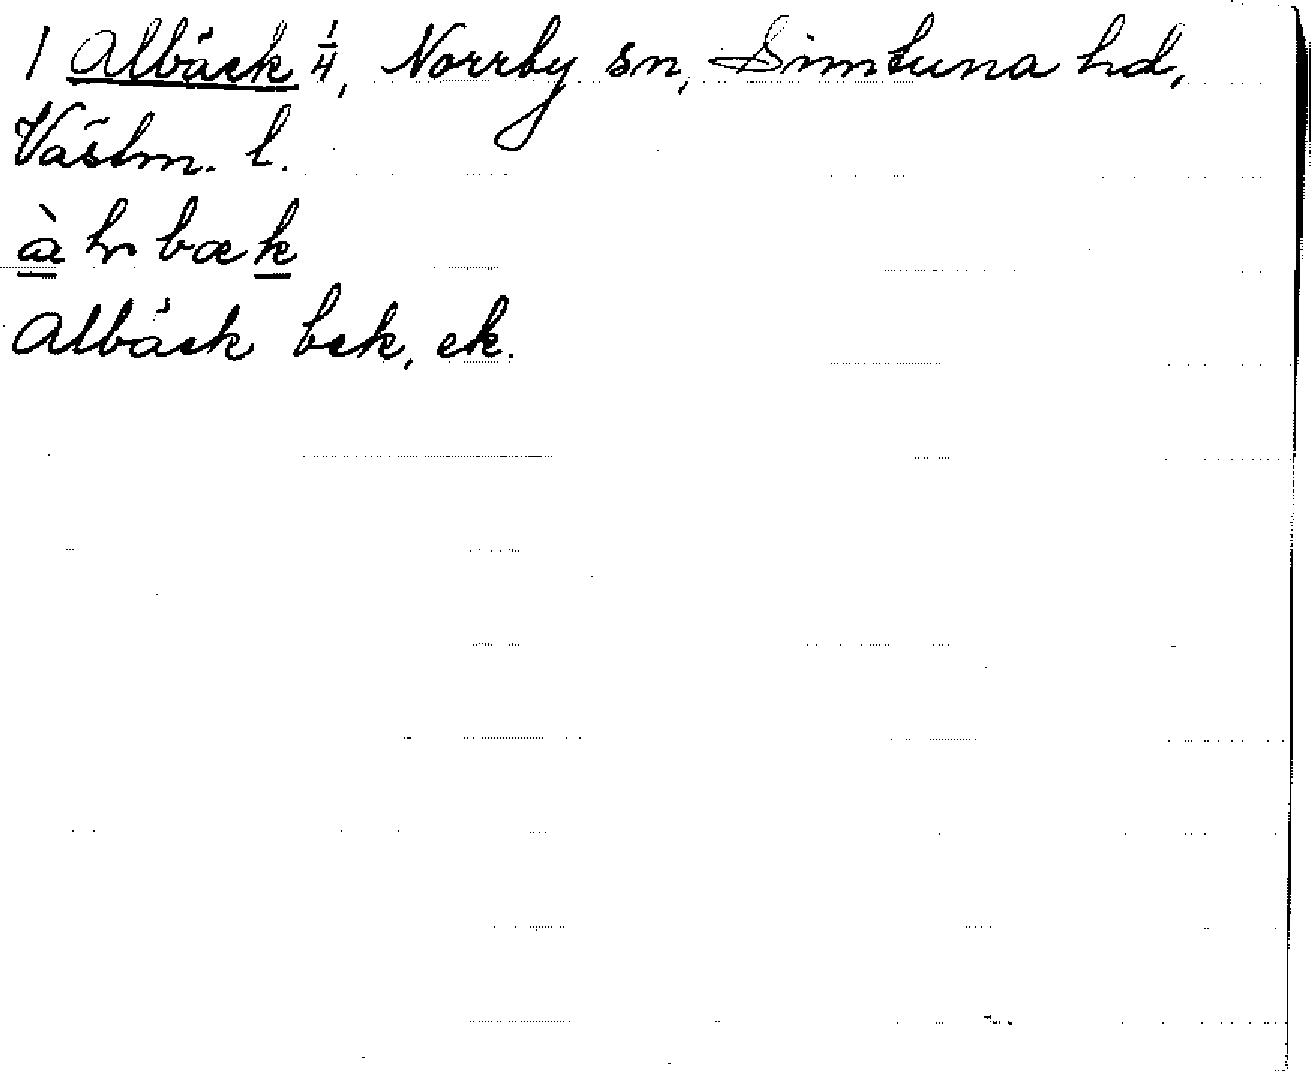 1 Albäck 1/4, Norrby sn, Simtuna hd,
Västm. l.
bæk
Albäck bek, ek.